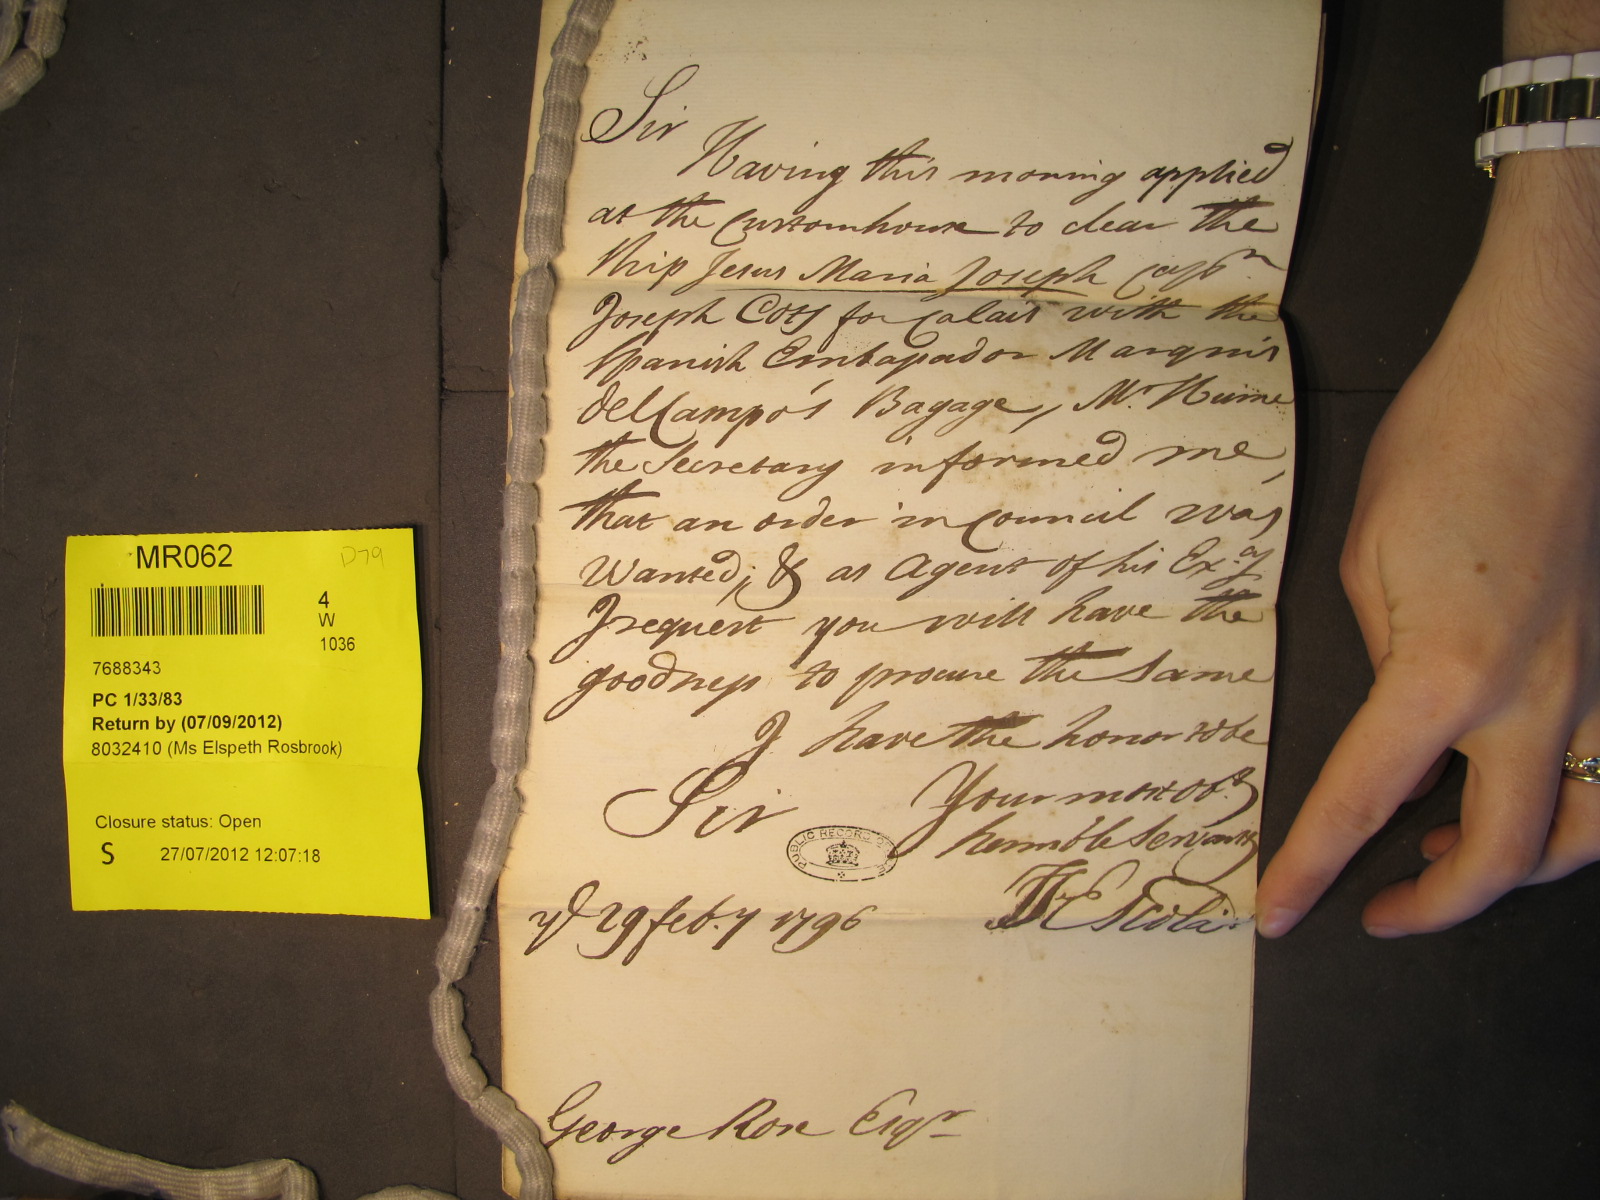 Sir
Having this morning applied
at the Customhouse to clear the
Ship Jesus Maria Joseph Capt.n
Joseph Cots for Calais with the
Spanish Embassador Marquis
del Campo's Bagage, Mr Hume
the Secretary informed me,
that an order in Council was
Wanted; & as Agent of his Ex.cy
I request you will have the
goodness to procure the same
I have the honor to be
Sir Your most ob.t
humble Servant
29 feb.y 1796
George Rose Esqr
PUBLIC RECORD OFFICE
MR062
D79
4
W
1036
7688343
PC 1/33/83
Return by (07/09/2012)
8032410 (Ms Elspeth Rosbrook)
Closure status: Open
S 27/07/2012 12:07:18